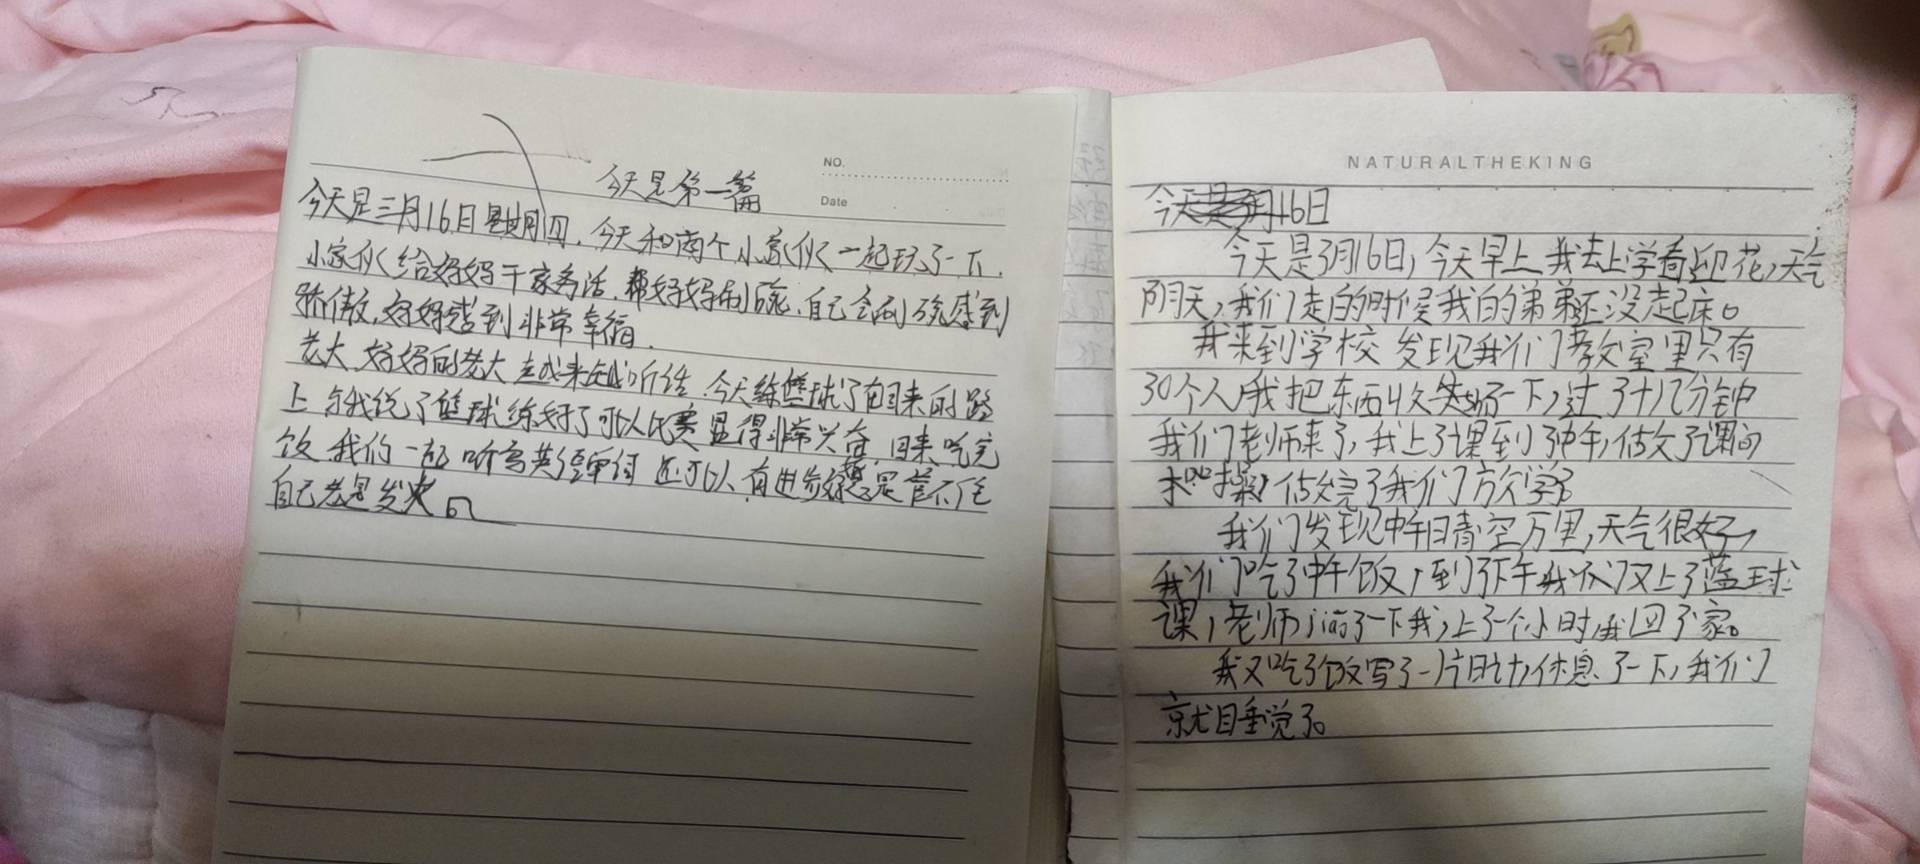 NO.
Date
今天是第一篇
今天是三月16日星期四，今天和两个小家伙一起玩了一下，
小家伙给妈妈干家务活，帮妈妈刷碗，自己会刷碗感到
骄傲，妈妈感到非常幸福．
老大 妈妈的老大 越来越听话，今天练篮球了在回来的路
上 与我说了篮球练好了可以比赛 显得非常兴奋 回来吃完
饭 我们一起听写英语单词 还可以，有进步 是管不住
自己老是发火。
NATURALTHEKING
今天是3月16日
今天是3月16日，今天早上我去上学看迎花，天气
阴天，我们走的时候我的弟弟还没起床。
我来到学校发现我们教室里只有
30个人，我把东西收拾了一下，过了十几分钟
我们老师来了，我上了课到了中午，做了课间
操，做完了我们放学了
我们发现中午晴空万里，天气很好，
我们吃了中午饭，到了下午我们又上了蓝球
课，老师了一下我，上了一个小时，我回了家。
我又吃了饭写了一片日，休息了一下，我们
就睡觉了。